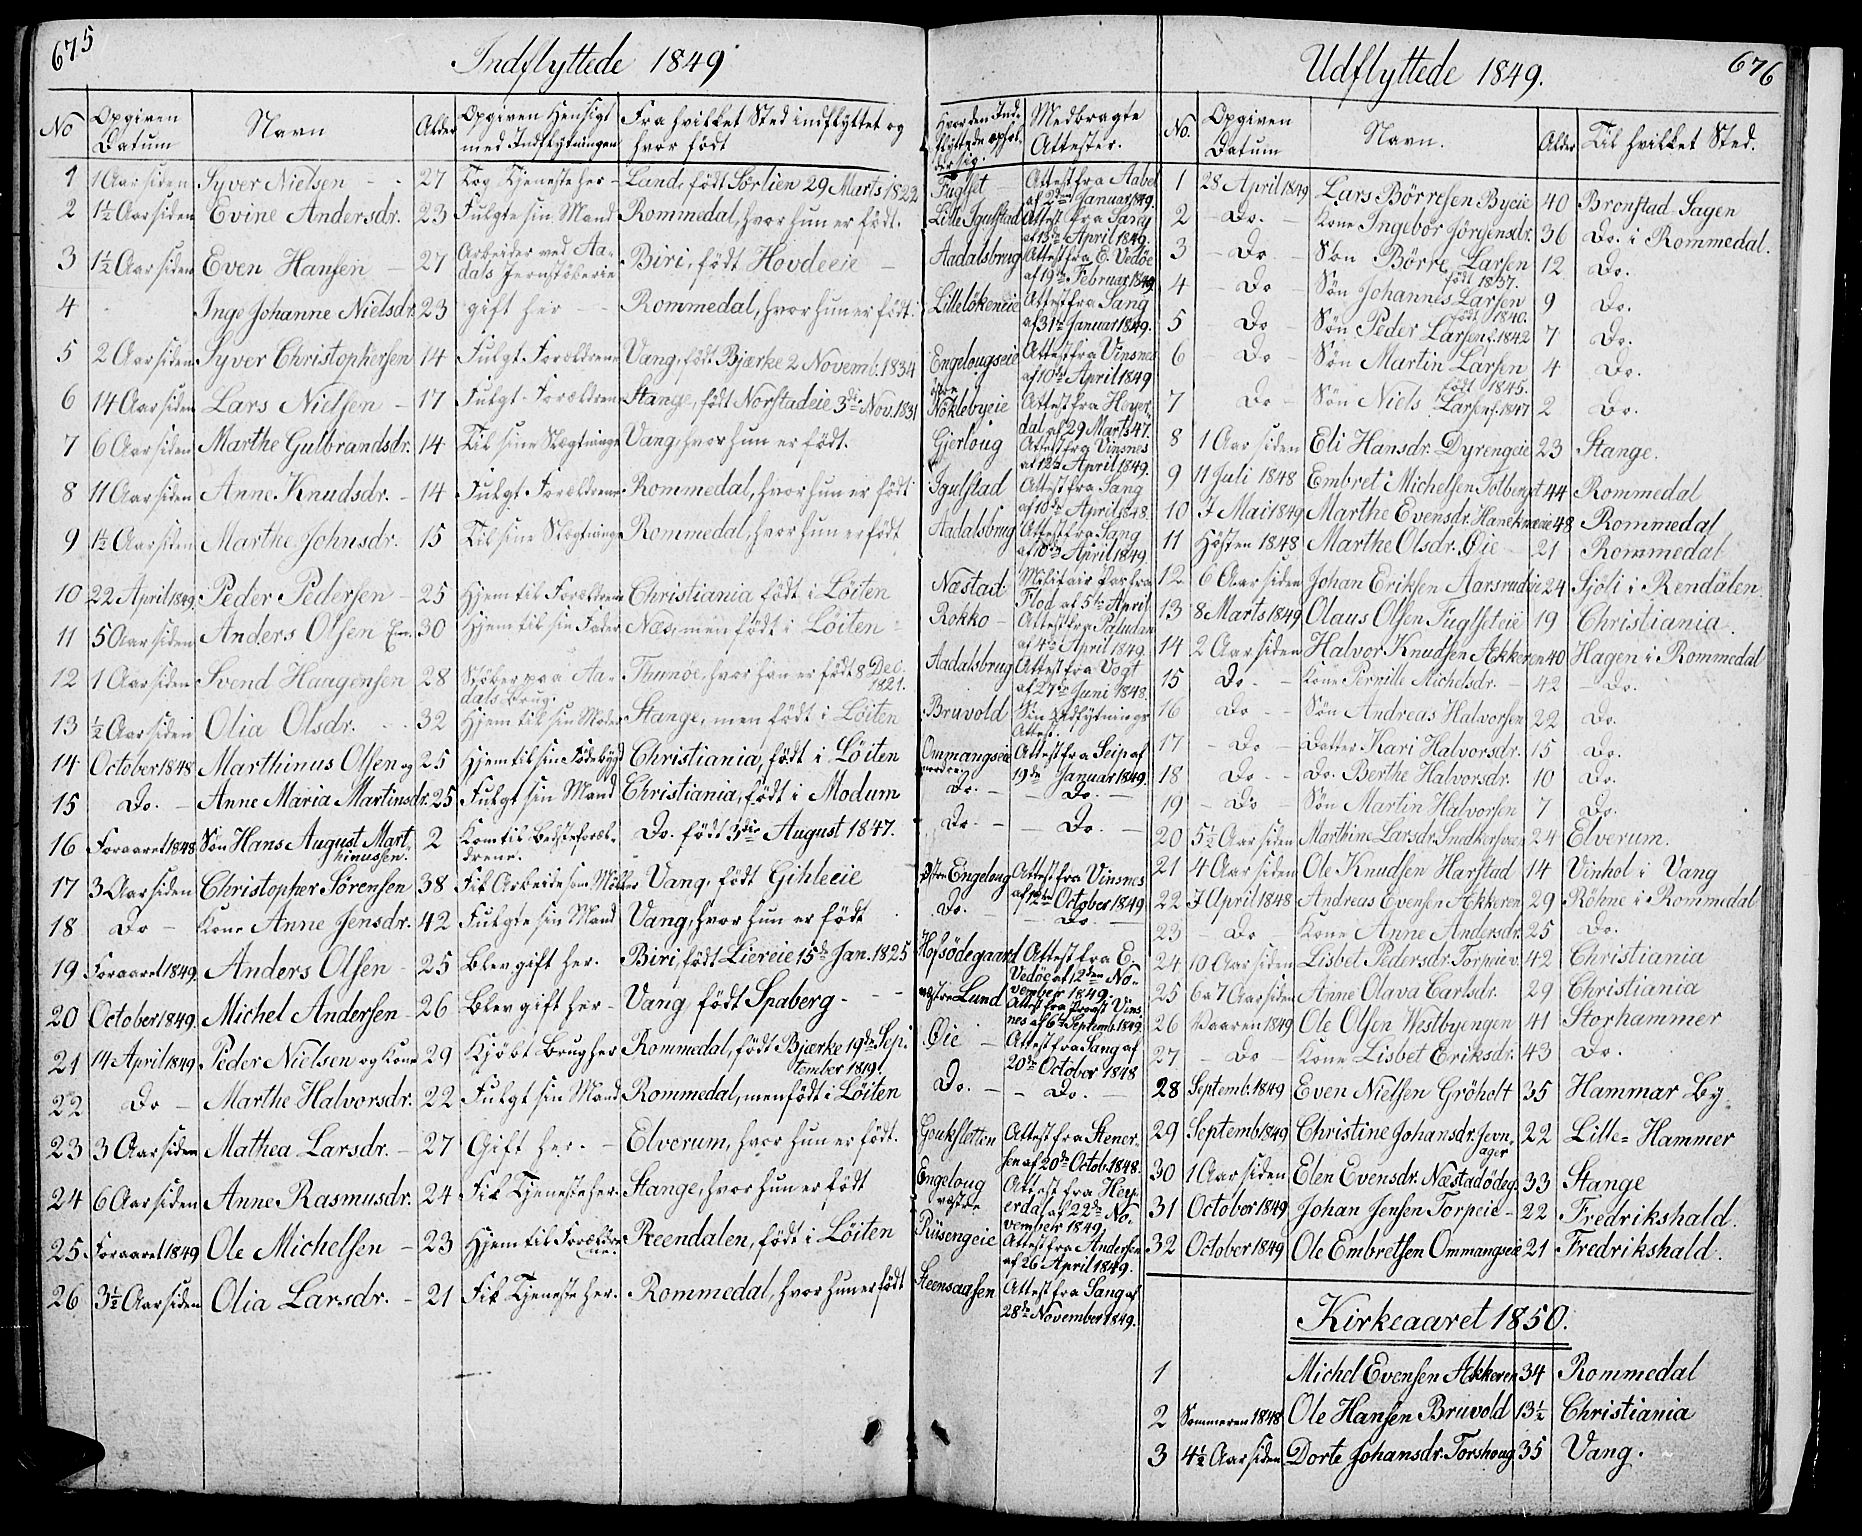 675
Indflyttede 1849
No | Opgiven Datum | Navn | Alder | Opgiven Hensigt med Indflytningen | Fra hvilket Sted indflyttet og hvor født | Hvor den Indflyttede opholder sig. | Medbragte Attester.
1 | 1 Aar siden | Syver Nielsen | 27 | Tog Tjeneste her | Land, født Sørlien 29 Marts 1822 | Fuglset | Attest fra Aabel af 2den Januar 1849.
2 | 1½ Aar siden | Evine Andersdr. | 23 | Fulgte sin Mand | Rommedal, hvor hun er født. | Lille Igulstad | Attest fra Sang af 13de April 1849.
3 | 1½ Aar siden | Even Hansen | 27 | Arbeider ved Aadals Jernstøberie | Biri, født Hovdeeie | Aadalsbrug | Attest fra E. Vedøe af 19de Februar 1849.
4 | Inge Johanne Nielsdr. | 23 | gift her | Rommedal, hvor hun er født. | Lilleløkeneie | Attest fra Sang af 31te Januar 1849.
5 | 2 Aar siden | Syver Christophersen | 14 | Fulgt Forældrene | Vang, født Bjærke 2 Novemb. 1834 | Engelougseie | Attest fra Vinsnes af 10de April 1849
6 | 14 Aar siden | Lars Nielsen | 17 | Fulgt Forældrene | Stange, født Norstadeie 3die Nov. 1831 | Nøklebyeie | Attest fra Heyerdal af 29 Marts 47.
7 | 6 Aar siden | Marthe Gulbrandsdr. | 14 | Til sine Slægtninge | Vang, hvor hun er født. | Gjerloug | Attest fra Vinsnes af 12te April 1849.
8 | 11 Aar siden | Anne Knudsdr. | 14 | Fulgt Forældrene | Rommedal, hvor hun er født | Igulstad | Attest fra Sang af 10de April 1848.
9 | 1½ Aar siden | Marthe Johnsdr. | 15 | Til sine Slægtninge | Rommedal, hvor hun er født | Aadalsbrug | Attest fra Sang af 10de April 1849.
10 | 22 April 1849. | Peder Pedersen | 25 | Hjem til Forældrene | Christiania født i Løiten | Næstad | Militair Pas fra Flod af 5te April
11 | 5 Aar siden | Anders Olsen Em. | 30 | Hjem til sin Fader | Næs, men født i Løiten | Rokko | Attest fra Paludan af 4de April 1849.
12 | 1 Aar siden | Svend Haagensen | 28 | Støber paa Aadals Brug. | Thunøe, hvor han er født 8 Dec. 1821. | Aadalsbrug | Attest fra Vogt af 27de Juni 1848.
13 | ½ Aar siden | Olia Olsdr. | 32 | Hjem til sin Moder | Stange, men født i Løiten | Bruvold | Sin Udflytnings Attest.
14 | October 1848 | Marthinus Olsen og | 25 | Hjem til sin Fødebygd | Christiania, født i Løiten | Ommangseie nordre | Attest fra Seip af 19de Januar 1849.
15 | Do. | Anne Maria Martinsdr. | 25 | Fulgt sin Mand | Christiania, født i Modum | Do. | Do.
16 | Foraaret 1848 | Søn Hans August Marthinussen. | 2 | Kom til Bedsteforældrene. | Do. født 3die August 1847. | Do. | Do.
17 | 3 Aar siden | Christopher Sørensen | 38 | Fik Arbeide som Møller | Vang, født Gihleeie | Østre Engeloug | Attest fra Vinsnes af 12te October 1849
18 | Do | Kone Anne Jensdr. | 42 | Fulgte sin Mand | Vang, hvor hun er født | Do. | Do.
19 | Foraaret 1849. | Anders Olsen | 25 | Blev gift her. | Biri, født Liereie 15de Jan. 1825 | Hofsødegaard | Attest fra E. Vedøe af 12den November 1849.
20 | October 1849. | Michel Andersen | 26 | Blev gift her | Vang født Spaberg | vestre Lund | Attest fra Provst Vinsnes af 6te Septemb. 1849.
21 | 14 April 1849 | Peder Nielsen og Kone | 29 | Kjøbt Brug her | Rommedal, født Bjærke 19de September 1819. | Øie | Attest fra Sang af 20de October 1848
22 | Do | Marthe Halvorsdr. | 22 | Fulgt sin Mand | Rommedal, men født i Løiten | Do. | Do.
23 | 3 Aar siden | Mathea Larsdr. | 27 | Gift her. | Elverum, hvor hun er født. | Goukstetten | Attest fra Stenersen af 20de Octob. 1848.
24 | 6 Aar siden | Anne Rasmusdr. | 24 | Fik Tjeneste her. | Stange, hvor hun er født | Engeloug vestre | Attest fra Heyerdal af 22de November 1849.
25 | Foraaret 1849 | Ole Michelsen | 23 | Hjem til Forældrene. | Reendalen, født i Løiten | Rüsengeie | Attest fra Andersen af 26 April 1849.
26 | 3½ Aar siden | Olia Larsdr. | 21 | Fik Tjeneste her. | Rommedal, hvor hun er født | Steensaasen | Attest fra Sang af 28de November 1849.
676
Udflyttede 1849.
No. | Opgiven Datum | Navn. | Alder | Til hvilket Sted.
1 | 28 April 1849 | Lars Børresen Byeie | 40 | Bronstad Sagen
2 | Do. | Kone Ingebor Jørgensdr. | 36 | Do. i Rommedal.
3 | Do. | Søn Børre Larsen født 1837. | 12 | Do.
4 | Do | Søn Johannes Larsen født 1840. | 9 | Do.
5 | Do | Søn Peder Larsen f. 1842 | 7 | Do.
6 | Do | Søn Martin Larsen født 1845. | 4 | Do.
7 | Do | Søn Niels Larsen f. 1847 | 2 | Do.
8 | 1 Aar siden | Eli Hansdr. Dyrengeie | 23 | Stange.
9 | 11 Juli 1848 | Embret Michelsen Totberget | 44 | Rommedal
10 | 7 Mai 1849 | Marthe Evensdr. Hanekneeie | 48 | Rommedal
11 | Høsten 1848 | Marthe Olsdr. Øie | 21 | Rommedal
12 | 6 Aar siden | Johan Eriksen Aarsrudei | 24 | Sjøli i Rendalen.
13 | 8 Marts 1849 | Olaus Olsen Fuglseteie | 19 | Christiania.
14 | 2 Aar siden | Halvor Knudsen Akkeren | 40 | Hagen i Rommedal
15 | Do. | Kone Pernille Michelsdr. | 42 | Do.
16 | Do | Søn Andreas Halvorsen | 22 | Do.
17 | Do | Datter Kari Halvorsdr. | 15 | Do.
18 | Do. | Do. Berthe Halvorsdr. | 10 | Do.
19 | Do | Søn Martin Halvorsen | 7 | Do.
20 | 5½ Aar siden | Marthine Larsdr. | 24 | Elverum.
21 | 4 Aar siden | Ole Knudsen Harstad | 14 | Vinhol i Vang
22 | 7 April 1848 | Andreas Evensen Akkeren | 29 | Røhne i Rommedal
23 | Do | Kone Anne Andersdr. | 25 | Do.
24 | 10 Aar siden | Lisbet Pedersdr. Torpeiev. | 42 | Christiania
25 | 6 a 7 Aar siden | Anne Olava Carlsdr. | 29 | Christiania
26 | Vaaren 1849 | Ole Olsen Westbyengen | 41 | Storhammer
27 | Do | Kone Lisbet Eriksdr. | 43 | Do.
28 | Septemb. 1849 | Even Nielsen Grøholt | 35 | Hammar By.
29 | Septemb 1849 | Christine Johansdr. Jevnager | 22 | Lille=Hammer
30 | 1 Aar siden | Elen Evensdr. Næstadødeg. | 33 | Stange
31 | October 1849 | Johan Jensen Torpeie | 22 | Fredrikshald.
32 | October 1849 | Ole Embretsen Ommangseie | 21 | Fredrikshald.
Kirkeaaret 1850.
1 | Michel Evensen Akkeren | 34 | Rommedal
2 | Sommeren 1848 | Ole Hansen Bruvold | 13½ | Christiania
3 | 4½ Aar siden | Dorte Johansdr. Torshoug | 35 | Vang.